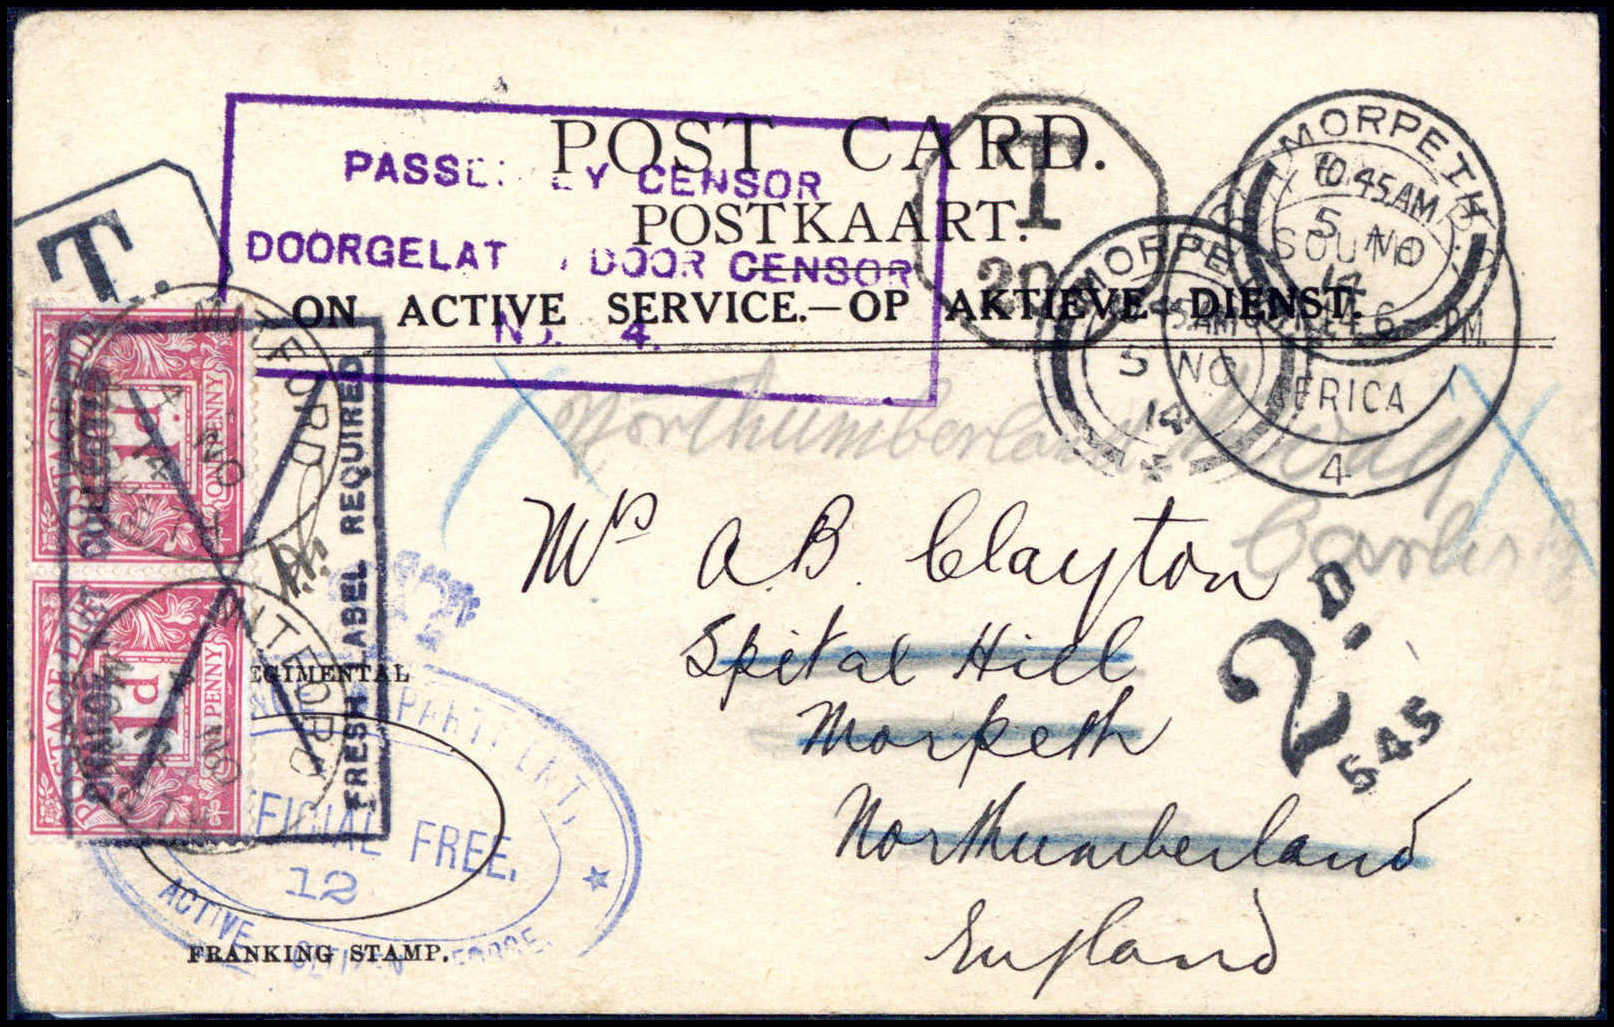 POST CARD.
POSTKAART.
ON ACTIVE SERVICE.—OP AKTIEVE DIENST.
CENSOR
DOORGELAT DOOR CENSOR
No. 4.
T.
T
20
MORPETH
10.45.AM
5 NO
14
MORPE
45.AM
5 NO
14
SOUTH
AFRICA
4
Northumberland
Mrs A.B. Clayton
Spital Hill
Morpeth
Northumberland
England
2D.
545
POSTAGE DUE
1d
ONE PENNY
POSTAGE DUE
1d
ONE PENNY
FRESH LABEL REQUIRED
REGIMENTAL
OFFICIAL FREE.
12
ACTIVE CITIZEN FORCE.
FRANKING STAMP.